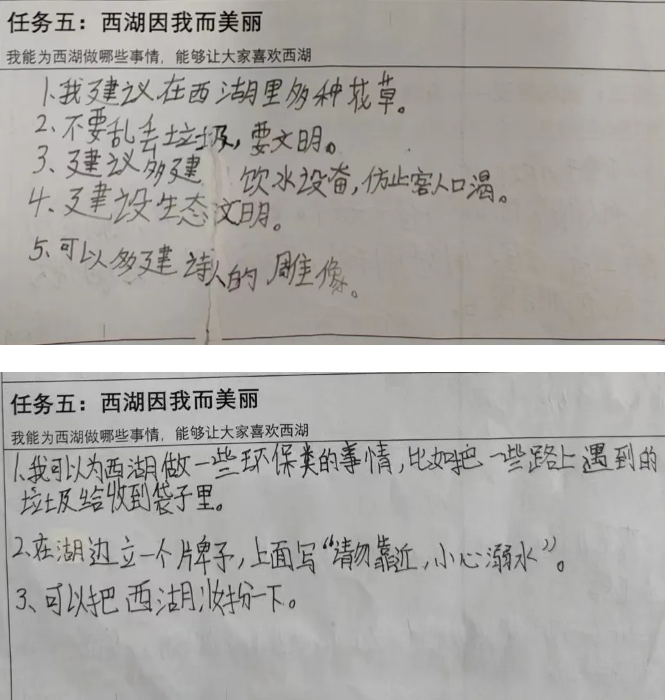 任务五：西湖因我而美丽
我能为西湖做哪些事情，能够让大家喜欢西湖
1.我建议在西湖里多种花草。
2、不要乱丢垃圾，要文明。
3、建议多建 饮水设备，仿止客人口渴。
4、建设生态文明。
5、可以多建诗人的雕像。
任务五：西湖因我而美丽
我能为西湖做哪些事情，能够让大家喜欢西湖
1、我可以为西湖做一些环保类的事情，比如把一些路上遇到的
垃圾给收到袋子里。
2、在湖边立一个牌子，上面写“请勿靠近，小心溺水”。
3、可以把西湖妆扮一下。